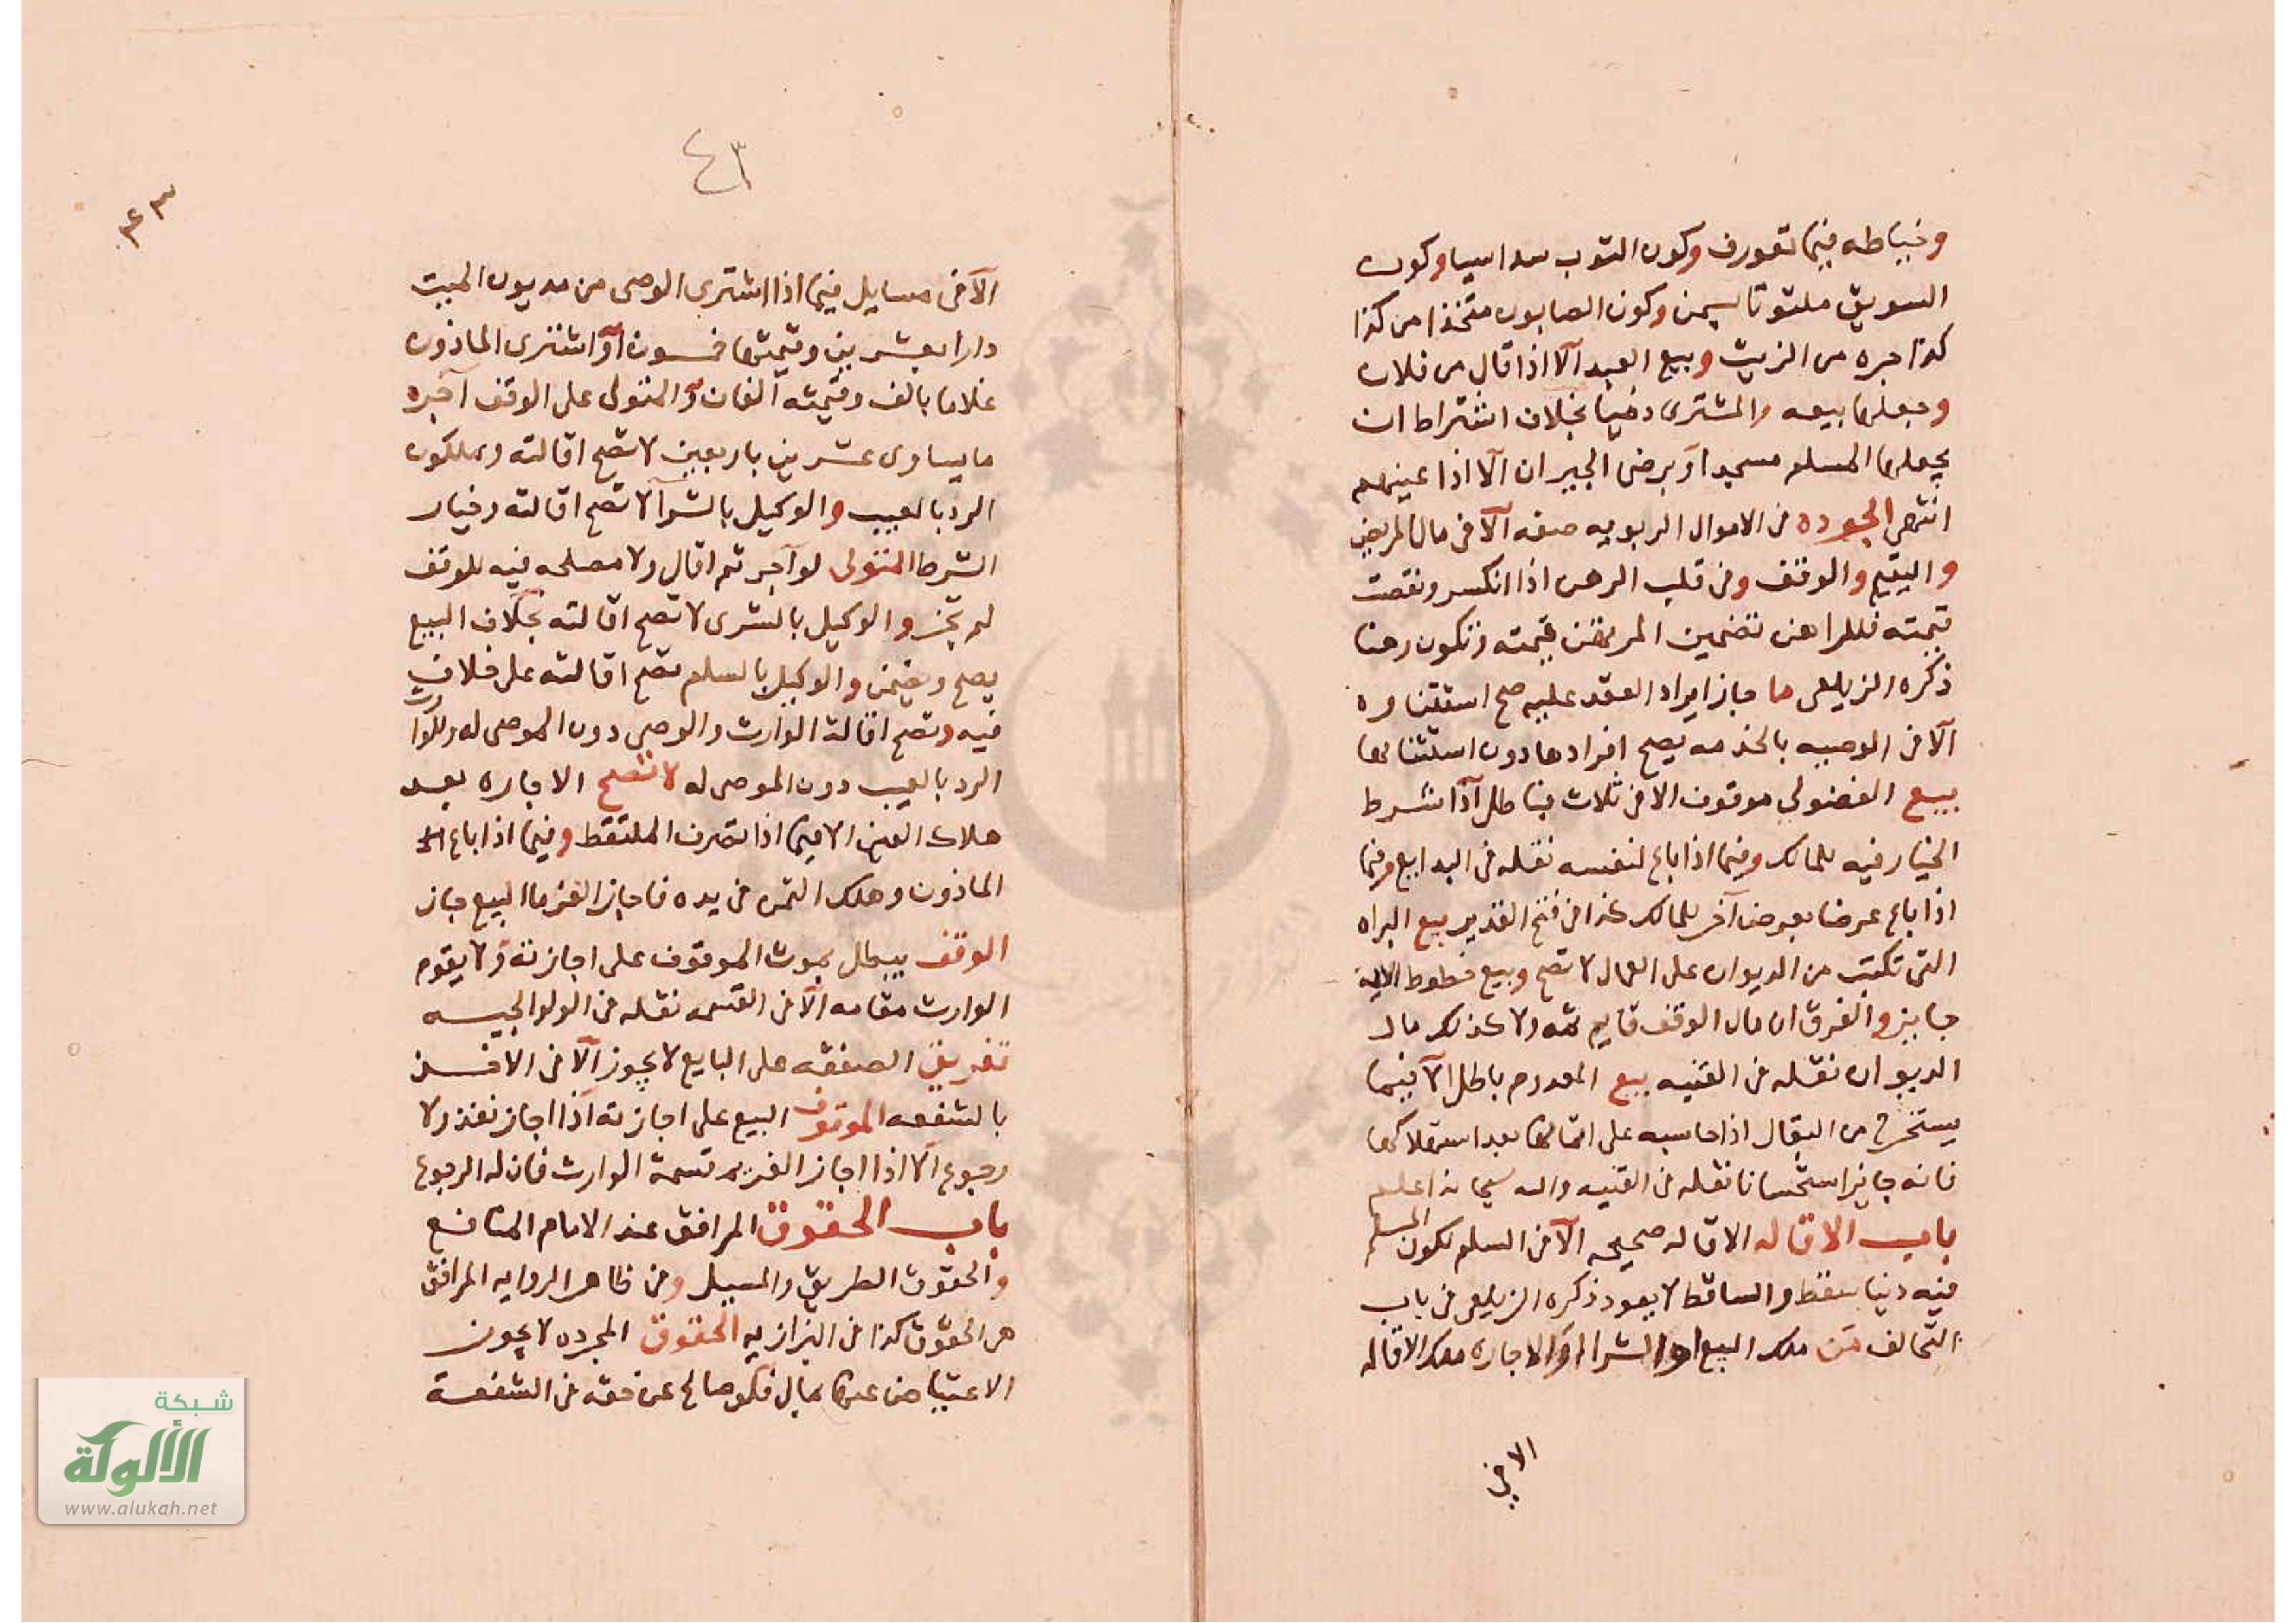 وخياطه فيما تعورف وكون الثوب سداسيا وكون
السويق ملتوتا بسمن وكون الصابون متخذا من كذا
كذا جره من الزيت وبيع العبد الا اذا قال من فلان
وجعلها بيعه والمشترى ذميا بخلاف اشتراط ان
يجعلها المسلم مسجدا او برضى الجيران الا اذا عينهم
انتهى الجوده فى الاموال الربويه صفه الا فى مال المريض
واليتيم والوقف وفى قلب الرهن اذا انكسر ونقصت
قيمته فللراهن تضمين المرتهن قيمته وتكون رهنا
ذكره الزيلعى ما جاز ايراد العقد عليه صح استثناوه
الا فى الوصيه بالخدمه يصح افرادها دون استثنائها
بيع الفضولى موقوف الا فى ثلاث فباطل اذا شرط
الخيار فيه للمالك وفيما اذا باع لنفسه نقله فى البدايع وفيما
اذا باع عرضا بعرض آخر للمالك كذا فى فتح القدير بيع البراه
التى تكتب من الديوان على العمال لا تصح وبيع خطوط الايمة
جايز والفرق ان مال الوقف قايم ثمه ولا كذلك مال
الديوان نقله فى القنيه بيع المعدوم باطل الا فيما
يستخرج من البقال اذا حاسبه على اثمانها بعد استهلاكها
فانه جايز استحسانا نقله فى القنيه والله سبحانه اعلم
باب الاقاله الاقاله صحيحه الا فى السلم لكون المسلم
فيه دينا سقط والساقط لا يعود ذكره الزيلعى فى باب
التحالف من ملك البيع او الشرا او الاجاره ملك الاقاله
الا فى
٤٣
٤٣
الا فى مسايل فيما اذا اشترى الوصى من مديون الميت
دارا بعشرين وقيمتها خمسون او اشترى الماذون
غلاما بالف وقيمته الفان والمتولى على الوقف آجره
ما يساوى عشرين باربعين لا تصح اقالته ويملكون
الرد بالعيب والوكيل بالشرا لا تصح اقالته وخيار
الشرط المتولى لو آجر ثم اقال ولا مصلحه فيه للوقف
لم يجز والوكيل بالشرى لا تصح اقالته بخلاف البيع
يصح ويضمن والوكيل بالسلم تصح اقالته على خلاف
فيه وتصح اقالة الوارث والوصى دون الموصى له وللوارث
الرد بالعيب دون الموصى له لا تصح الاجازه بعد
هلاك العين الا فيما اذا تصرف الملتقط وفيما اذا باع
الماذون وهلك الثمن فى يده فاجاز الغرما البيع جاز
الوقف يبطل بموت الموقوف على اجازته ولا يقوم
الوارث مقامه الا فى القسمه نقله فى الولوالجيه
تفريق الصفقه على البايع لا يجوز الا فى الاخذ
بالشفعه الموقوف البيع على اجازته اذا اجاز نفذ ولا
رجوع الا اذا اجاز الغريم قسمة الوارث فان له الرجوع
باب الحقوق المرافق عند الامام المنافع
والحقوق الطريق والمسيل وفى ظاهر الروايه المرافق
هى الحقوق كذا فى البزازيه الحقوق المجرده لا يجوز
الاعتياض عنها بمال فلو صالح عن حقه فى الشفعة
شبكة
الألوكة
www.alukah.net